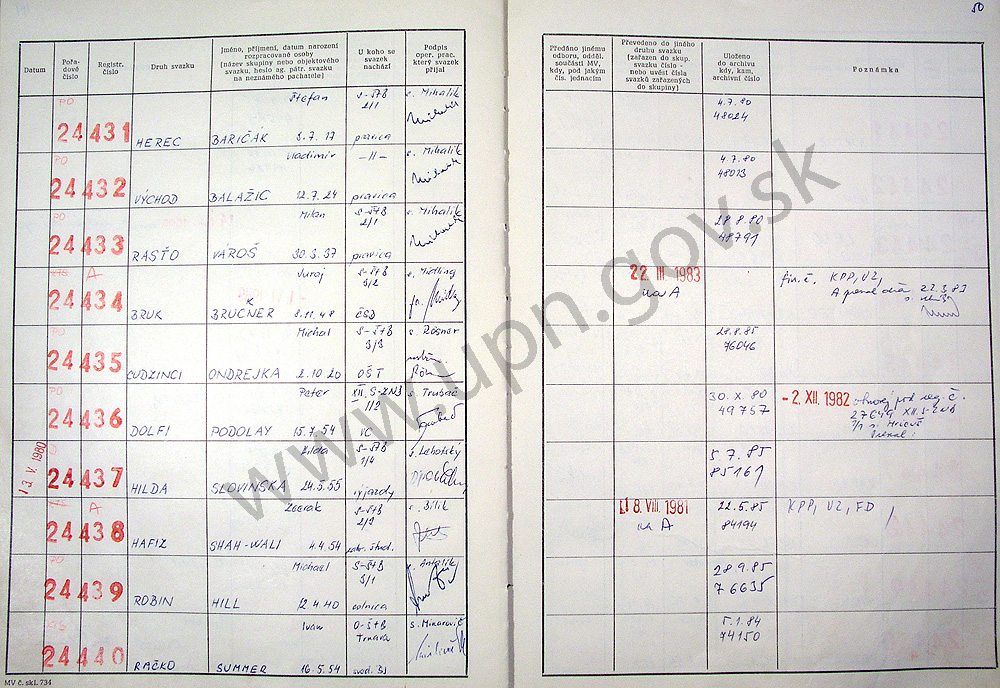 50
Datum
Pořadové číslo
Registr. číslo
Druh svazku
Jméno, příjmení, datum narození
rozpracované osoby
(název skupiny nebo objektového
svazku, heslo ag. pátr. svazku
na neznámého pachatele)
U koho se
svazek
nachází
Podpis
oper. prac.
který svazek
přijal
Předáno jinému
odboru, odděl.,
součásti MV,
kdy, pod jakým
čís. jednacím
Převedeno do jiného
druhu svazku
(zařazen do skup.
svazku číslo -
nebo uvést čísla
svazků zařazených
do skupiny)
Uloženo
do archivu
kdy, kam,
archivní číslo
Poznámka
PO Štefan S-ŠTB s. Mihalik 4.7.80
2/1 48024
24 431 HEREC BARIČAK 3.7.17 pravica
PO Vladimír -11- s. Mihalik 4.7.80
24 432 VÝCHOD BALAŽIC 12.7.24 pravica
PO Milan S-ŠTB s. Mihalik 28.8.80
2/1 48791
24 433 RASŤO VÁROŠ 30.3.37 pravica
A Juraj S-ŠTB s. Midling 22. III 1983 fin.č. KPP, VZ,
3/2 na A
24 434 BRUK BRUCNER 8.11.48 ČSD
K
Michal S-ŠTB s. Rösner 28.8.85
3/3 76046
24 435 CUDZINCI ONDREJKA 2.10.20 OŠT
PO Peter XII. S-ZNB s. Trubač 30.X.80 -2. XII. 1982
49757 27649 XII. S-ZNB
24 436 DOLFI PODOLAY 15.7.54 VC
13. V. 1980 S-ŠTB s. Lehotský 5.7.85
1/4 85161
24 437 HILDA SLOVINSKA 24.5.55 výjazdy
A S-ŠTB s. Bílik 8. VIII. 1981 22.5.85 KPP, VZ, FD
2/2 na A 84194
24 438 HAFIZ SHAH-WALI 4.4.54 zahr. štud.
PO Michael S-ŠTB 28.9.85
3/1 76635
24 439 ROBIN HILL 12.4.40 colnica
Ivan O-ŠTB s. Minarovič 5.1.84
Trnava 74150
24 440 RAČKO SUMMER 16.5.54
MV č. skl. 734
www.upn.gov.sk